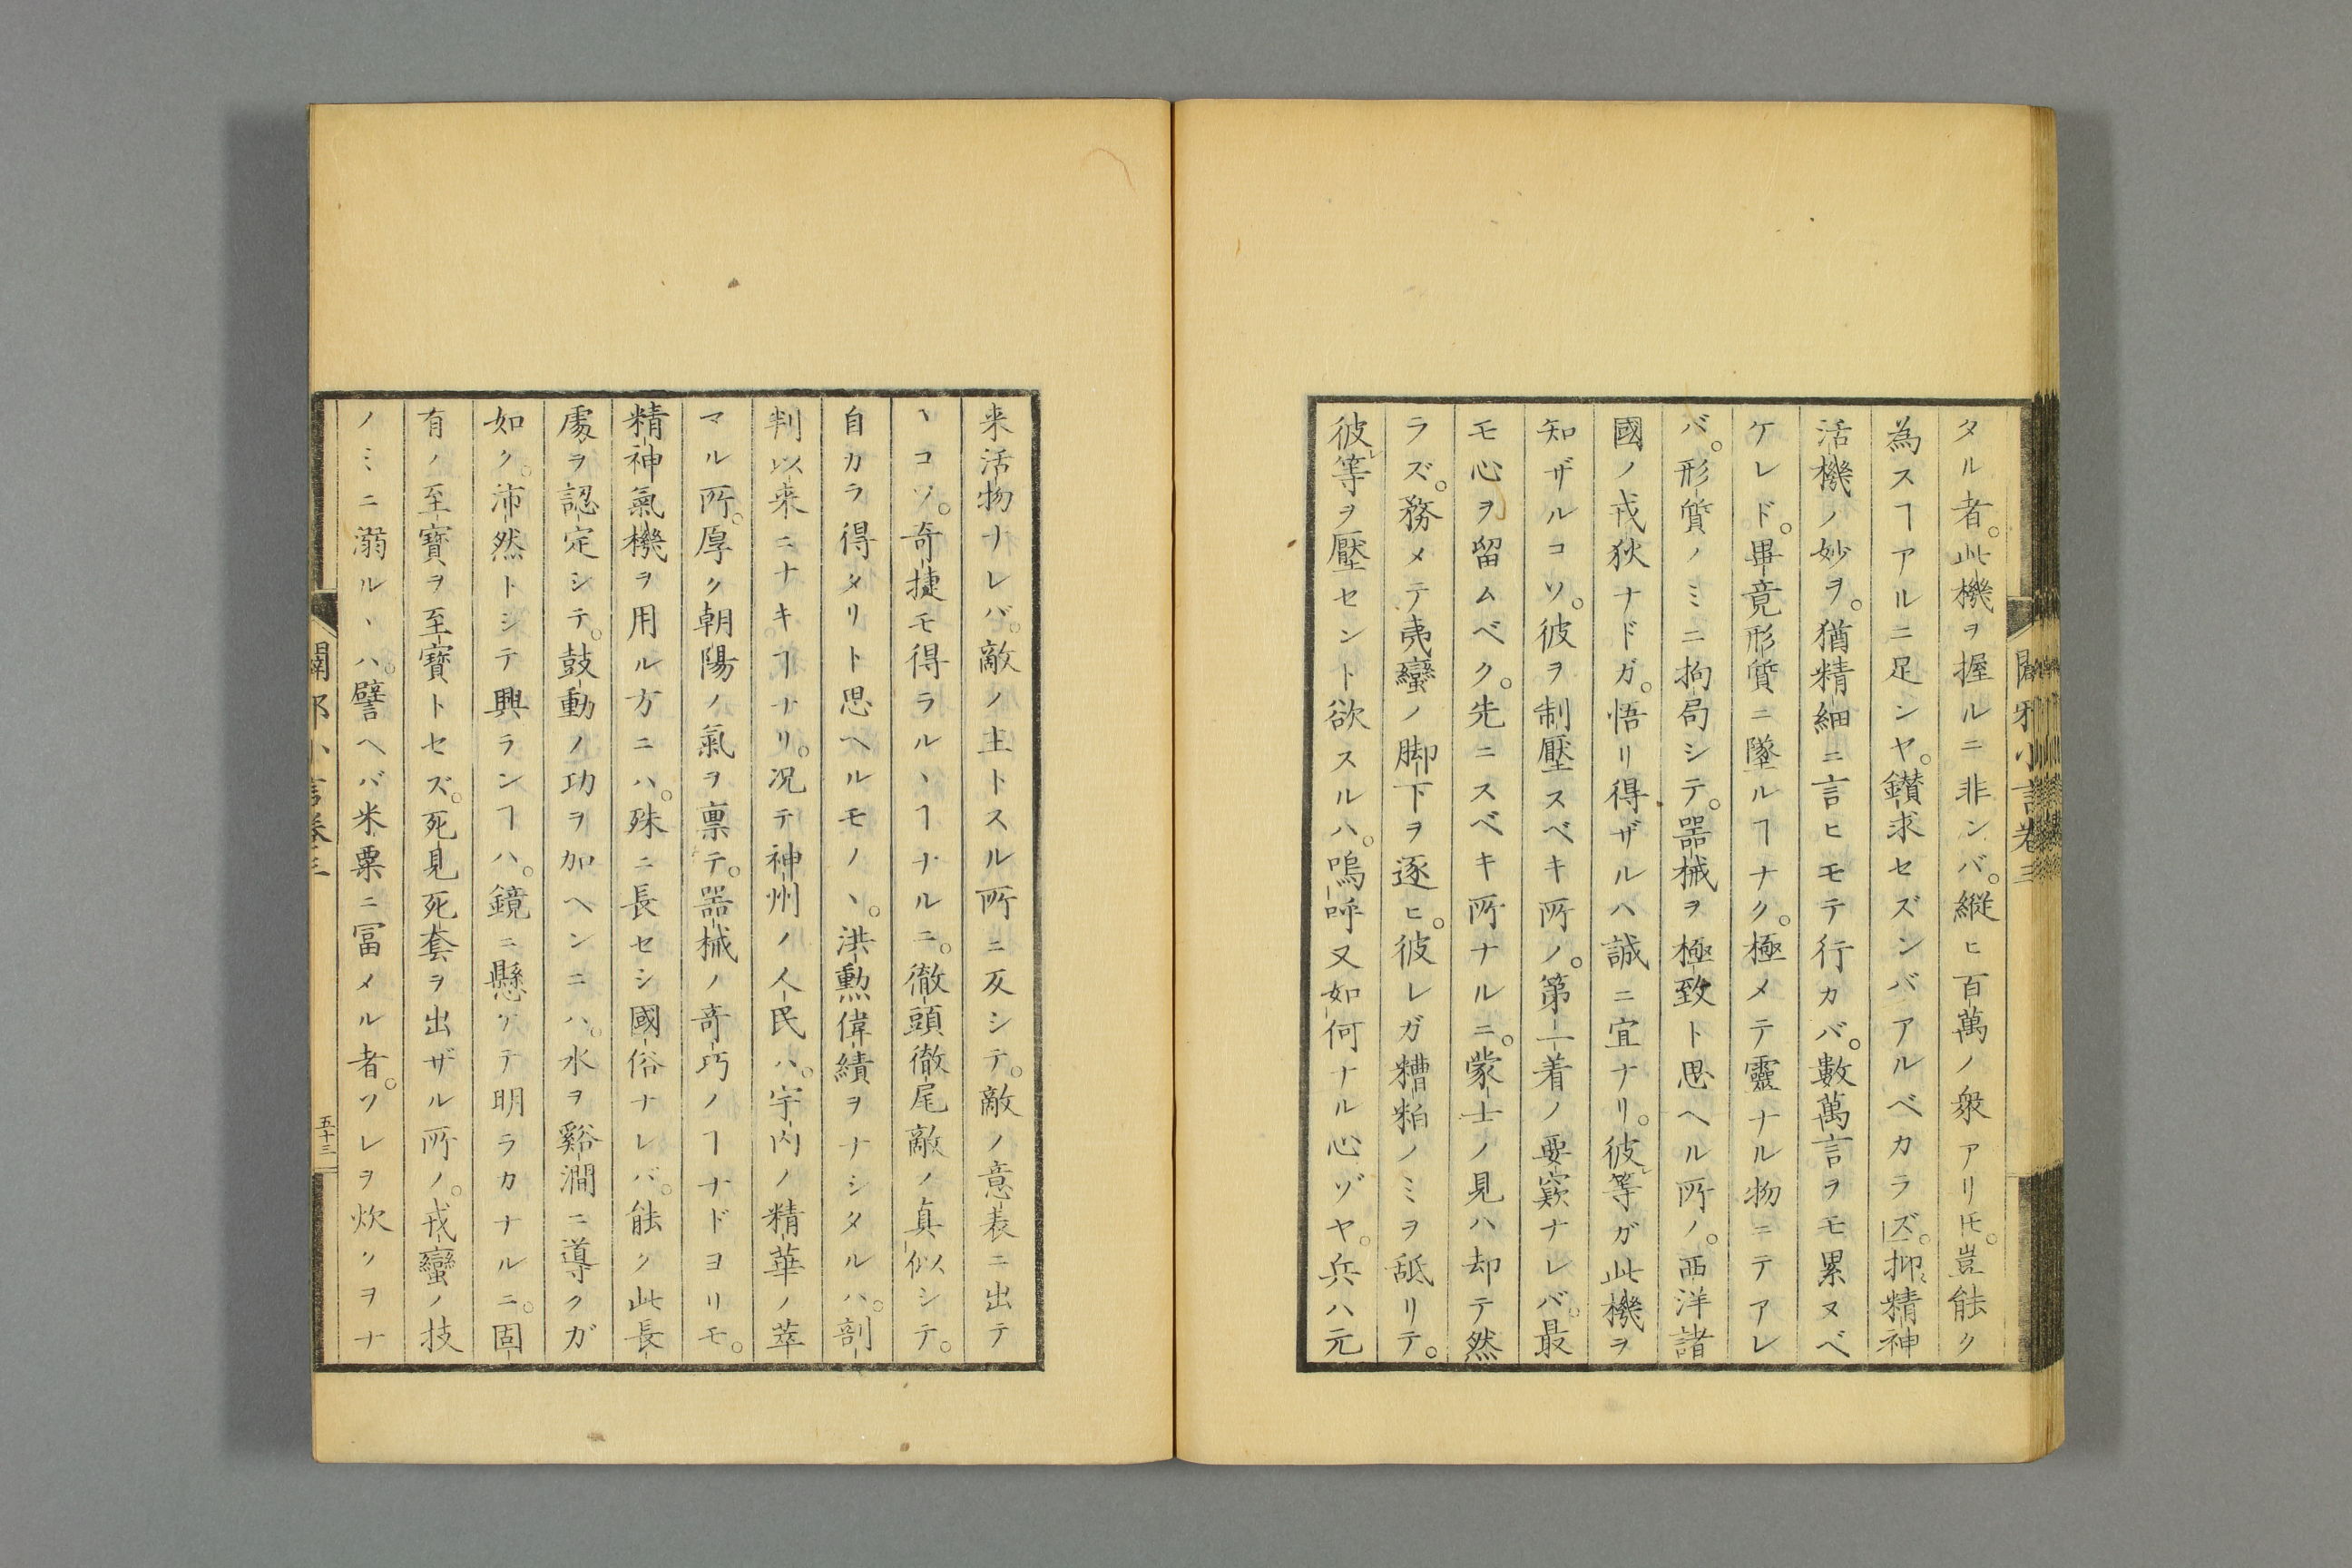 闢邪小言卷三
タル者。此機ヲ握ルニ非ンバ。縱ヒ百萬ノ衆アリ𪜈。豈能ク
為スヿアルニ足ンヤ。鑚求セズンバアルベカラズ。抑精神
活機ノ妙ヲ。猶精細ニ言ヒモテ行カバ。數萬言ヲモ累ヌベ
ケレド。畢竟形質ニ墜ルヿナク。極メテ靈ナル物ニテアレ
バ。形質ノミニ拘局シテ。器械ヲ極致ト思ヘル所ノ。西洋諸
國ノ戎狄ナドガ。悟リ得ザルハ誠ニ宜ナリ。彼レ等ガ此機ヲ
知ザルコソ。彼ヲ制壓スベキ所ノ。第一着ノ要竅ナレバ。最
モ心ヲ留ムベク。先ニスベキ所ナルニ。蒙士ノ見ハ却テ然
ラズ。務メテ夷蠻ノ脚下ヲ逐ヒ。彼レガ糟粕ノミヲ舐リテ。
彼レ等ヲ壓セント欲スルハ。嗚呼又如何ナル心ゾヤ。兵ハ元
来活物ナレバ。敵ノ主トスル所ニ反シテ。敵ノ意表ニ出テ
ヽコソ。奇捷モ得ラルヽヿナルニ。徹頭徹尾敵ノ真似シテ。
自カラ得タリト思ヘルモノヽ。洪勲偉績ヲナシタルハ。剖
判以来ニナキヿナリ。况テ神州ノ人民ハ。宇内ノ精華ノ萃
マル所。厚ク朝陽ノ氣ヲ禀テ。器械ノ奇巧ノヿナドヨリモ。
精神氣機ヲ用ル方ニハ。殊ニ長セシ國俗ナレバ。能ク此長
處ヲ認定シテ。鼓動ノ功ヲ加ヘンニハ。水ヲ谿澗ニ導クガ
如ク。沛然トシテ興ランヿハ。鏡ニ懸ケテ明ラカナルニ。固
有ノ至寶ヲ至寶トセズ。死見死套ヲ出ザル所ノ。戎蠻ノ技
ノミニ溺ルヽハ。譬ヘバ米粟ニ冨メル者。ソレヲ炊クヲナ
闢邪小言卷三
五十三